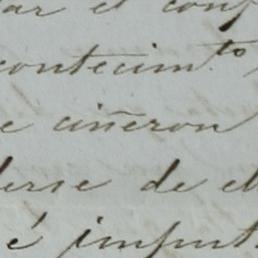 ar el conf
contecim.to
e ciñeron
derse de el
é imput